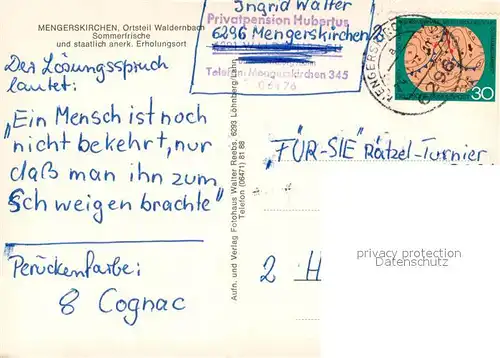 MENGERSKIRCHEN, Ortsteil Waldernbach
Sommerfrische
und staatlich anerk. Erholungsort
Ingrid Walter
Privatpension Hubertus
6296 Mengerskirchen
Telefon: Mengerskirchen 345
MENGERSKI
6296
30
Der Lösungsspruch
lautet:
„Ein Mensch ist noch
nicht bekehrt, nur
daß man ihn zum
Schweigen brachte"
Perückenfarbe:
8 Cognac
Aufn. und Verlag Fotohaus Walter Reebs, 6293 Löhnberg/Lahn
Telefon (06471) 81 88
„FÜR-SIE" Rätzel-Turnier
2 H
privacy protection
Datenschutz